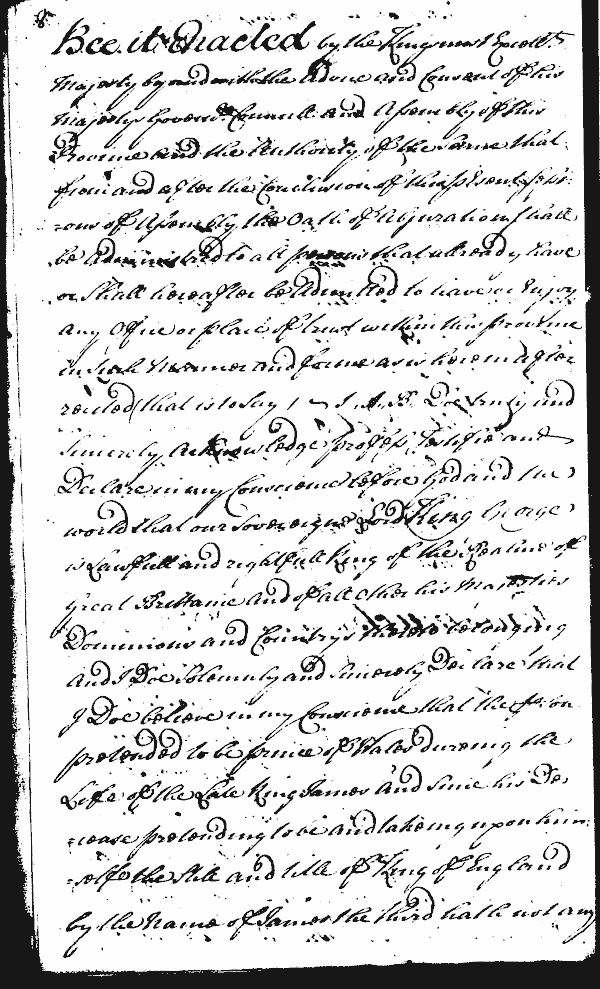 Bee it Enacted by the Kings most Excellt
Majesty by and with the Advice and Consent of his
Majestys Governr Councill and Assembly of this
Province and the Authority of the same that
from and after the Conclusion of this present Sessi-
-ons of Assembly the Oath of Abjuration shall
be Administred to all persons that already have
or Shall hereafter be Admitted to have or Enjoy
any Office or place of trust within this province
in Such Manner and forme as is herein after
recited (that is to say) I A. B. Doe truly and
Sincerely Acknowledge profess Testifie and
Declare in my Conscience before God and the
world that our Sovereigne Lord King George
is Lawfull and rightfull King of the Realme of
great Brittaine and of all other his Majesties
Dominions and Countrys thereto belonging
And I Doe Solemnly and Sincerely Declare that
I Doe believe in my Conscience that the person
pretended to be prince of Wales dureing the
Life of the Late King James and Since his De-
-cease pretending to be and takeing upon him-
-selfe the Stile and title of King of England
by the Name of James the third hath not any